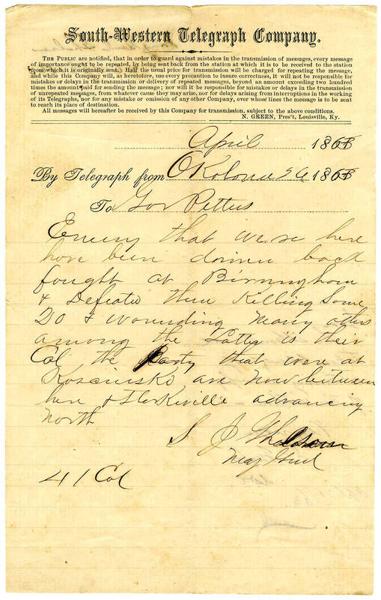 South-Western Telegraph Company.
THE PUBLIC are notified, that in order to guard against mistakes in the transmission of messages, every message
of importance ought to be repeated, by being sent back from the station at which it is to be received to the station
from which it is originally sent. Half the usual price for transmission will be charged for repeating the message,
and while this Company will, as heretofore, use every precaution to insure correctness, it will not be responsible for
mistakes or delays in the transmission or delivery of repeated messages, beyond an amount exceeding two hundred
times the amount paid for sending the message; nor will it be responsible for mistakes or delays in the transmission
of unrepeated messages, from whatever cause they may arise, nor for delays arising from interruptions in the working
of its Telegraphs, nor for any mistake or omission of any other Company, over whose lines the message is to be sent
to reach its place of destination.
All messages will hereafter be received by this Company for transmission, subject to the above conditions.
N. GREEN, Pres't, Louisville, Ky.
April 1863
By Telegraph from Okolona 26 1863
To Gov Pettus
Enemy that were here
have been driven back
fought at Birmingham
& Defeated them Killing Some
20 & wounding many others
among the Latter is their
Col the Party that were at
Kosciusko are now between
here & Starkville advancing
North
S J Gholson
Maj Genl
41 Col